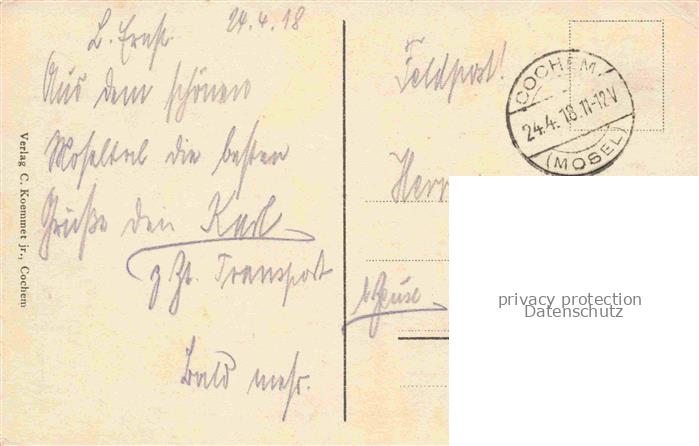 L. Ernst. 24.4.18
Aus dem schönen
Moseltal die besten
Grüße Dein Karl
z Zt. Transport
Bald mehr.
Verlag C. Koemmet jr., Cochem
Feldpost!
COCHEM
24.4.18.11-12V
(MOSEL)
Herr
privacy protection
Datenschutz